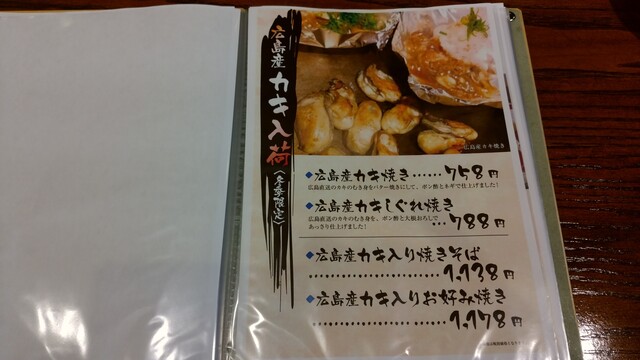 広島産カキ入荷
(冬季限定)
広島産カキ焼き
◆広島産カキ焼き……758円
広島直送のカキのむき身をバター焼きにして、ポン酢とネギで仕上げました!
◆広島産カキしぐれ焼き
広島直送のカキのむき身を、ポン酢と大根おろしで
あっさり仕上げました!
…788円
◆広島産カキ入り焼きそば
1,138円
◆広島産カキ入りお好み焼き
1,178円